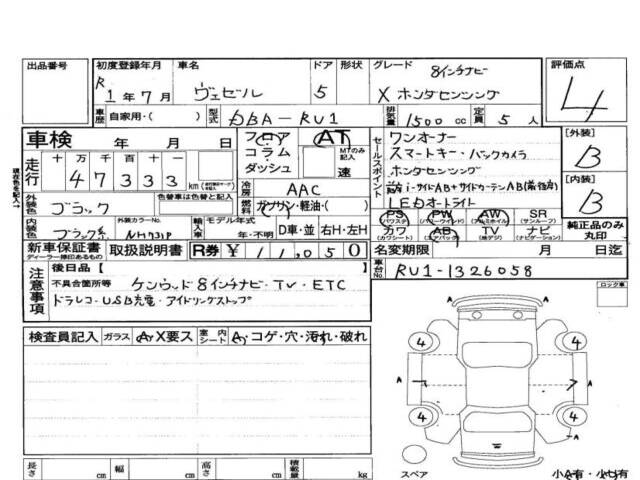 出品番号 初度登録年月 車名 ドア 形状 グレード 評価点
R 1年7月 ヴェゼル 5 8インチナビ X ホンダセンシング 4
車歴 自家用・( ) 型式 DBA-RU1 排気量 1500 cc 定員 5人
車検 年 月 日 フロア AT セールスポイント ワンオーナー [外装]
走行 十万千百十 47333 km コラム MTのみ記入 スマートキー・バックカメラ B
ダッシュ 速 ホンダセンシング
冷房 AAC [内装]
外装色 ブラック 色替車は色替と記入 燃料 ガソリン・軽油・( ) LEDオートライト B
PS (パワステ) PW (パワーウインド) AW (アルミホイール) SR (サンルーフ)
内装色 ブラック系 外装カラーNo. NH731P 輸入車 モデル年式 年・不明 D車・並 右H・左H カワ (カワシート) AB (エアバッグ) TV (地デジ) ナビ (ナビゲーション) 純正品のみ丸印
新車保証書 ディーラー捺印あるもの 取扱説明書 R券 ¥11,050 名変期限 月 日迄
注意事項 後日品[ ] 車台No. RU1-1326058
不具合箇所等 ケンウッド8インチナビ・TV・ETC ロック車
ドラレコ・USB充電・アイドリングストップ
検査員記入 ガラス A・X要ス 室内シート A・コゲ・穴・汚れ・破れ
4 4
A A
4 4
スペア
長さ cm 幅 cm 高さ cm 積載量 kg 小A有・小U有